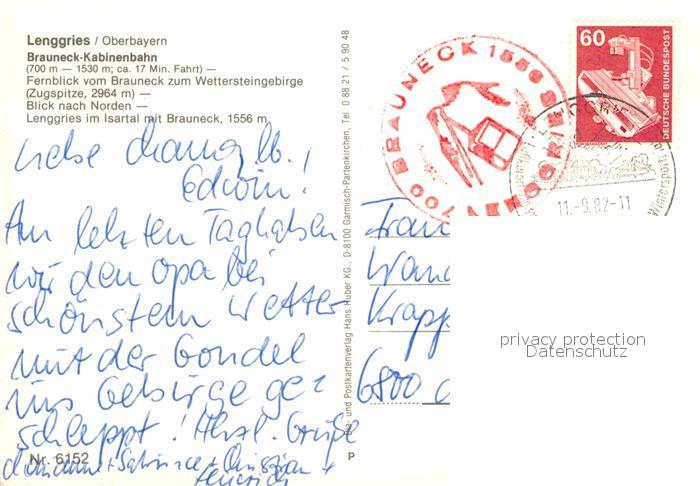 Lenggries / Oberbayern
Brauneck-Kabinenbahn
(700 m — 1530 m; ca. 17 Min. Fahrt) —
Fernblick vom Brauneck zum Wettersteingebirge
(Zugspitze, 2964 m) —
Blick nach Norden —
Lenggries im Isartal mit Brauneck, 1556 m
Liebe lb.,
Edwin!
Am letzten Tag haben
wir den Opa bei
schönstem Wetter
mit der Gondel
ins Gebirge ge=
schleppt! Herzl. Grüße
Nr. 6152
+ Sabine + Christian +
Foto- und Postkartenverlag Hans Huber KG., D-8100 Garmisch-Partenkirchen, Tel. 0 88 21 / 5 90 48
P
BRAUNECK 1556
LENGGRIES 700
60
DEUTSCHE BUNDESPOST
11.-9.82-11
Wintersport
Frau
Wan
Krapp
6800
privacy protection
Datenschutz